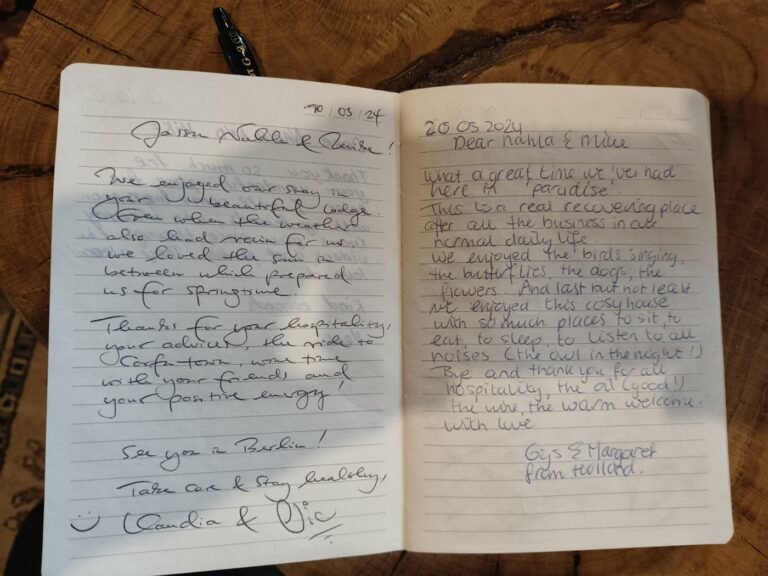 / 03 / 24
Jassu Nahla &
We enjoyed our stay
your beautiful lodge.
Even when the weather
also had rain for us,
we loved the sun in
between which prepared
us for springtime.
Thanks for your hospitality,
your advices, the ride to
Corfu-town, wine time
with your friends and
your positive energy!
See you in Berlin!
Take care & stay healthy,
Claudia &
20 05 2024
Dear Nahla & Mike
What a great time we 'ver had
here in 'paradise'.
This is a real recovering place
after all the business in our
normal daily life.
We enjoyed the birds singing,
the butterflies, the dogs, the
flowers. And last but not least
we enjoyed this cosy house
with so much places to sit, to
eat, to sleep, to listen to all
noises (the owl in the night!)
Bye and thank you for all
hospitality, the oil (good!)
the wine, the warm welcome.
With love
Gys & Margaret
from Holland.